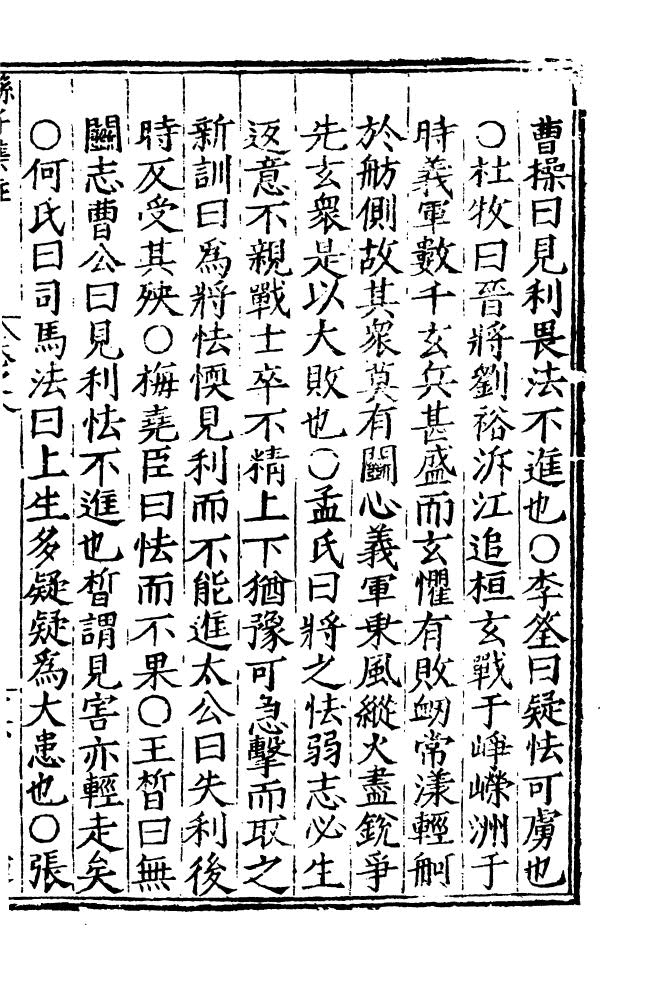 曹操曰見利畏法不進也〇李筌曰疑怯可虜也
〇杜牧曰晉將劉裕泝江追桓玄戰于崢嶸洲于
時義軍數千玄兵甚盛而玄懼有敗衂常漾輕舸
於舫側故其衆莫有鬭心義軍乗風縱火盡銳爭
先玄衆是以大敗也〇孟氏曰將之怯弱志必生
返意不親戰士卒不精上下猶豫可急擊而取之
新訓曰爲將怯愞見利而不能進太公曰失利後
時反受其殃〇梅堯臣曰怯而不果〇王晳曰無
鬭志曹公曰見利怯不進也晳謂見害亦輕走矣
〇何氏曰司馬法曰上生多疑疑爲大患也〇張